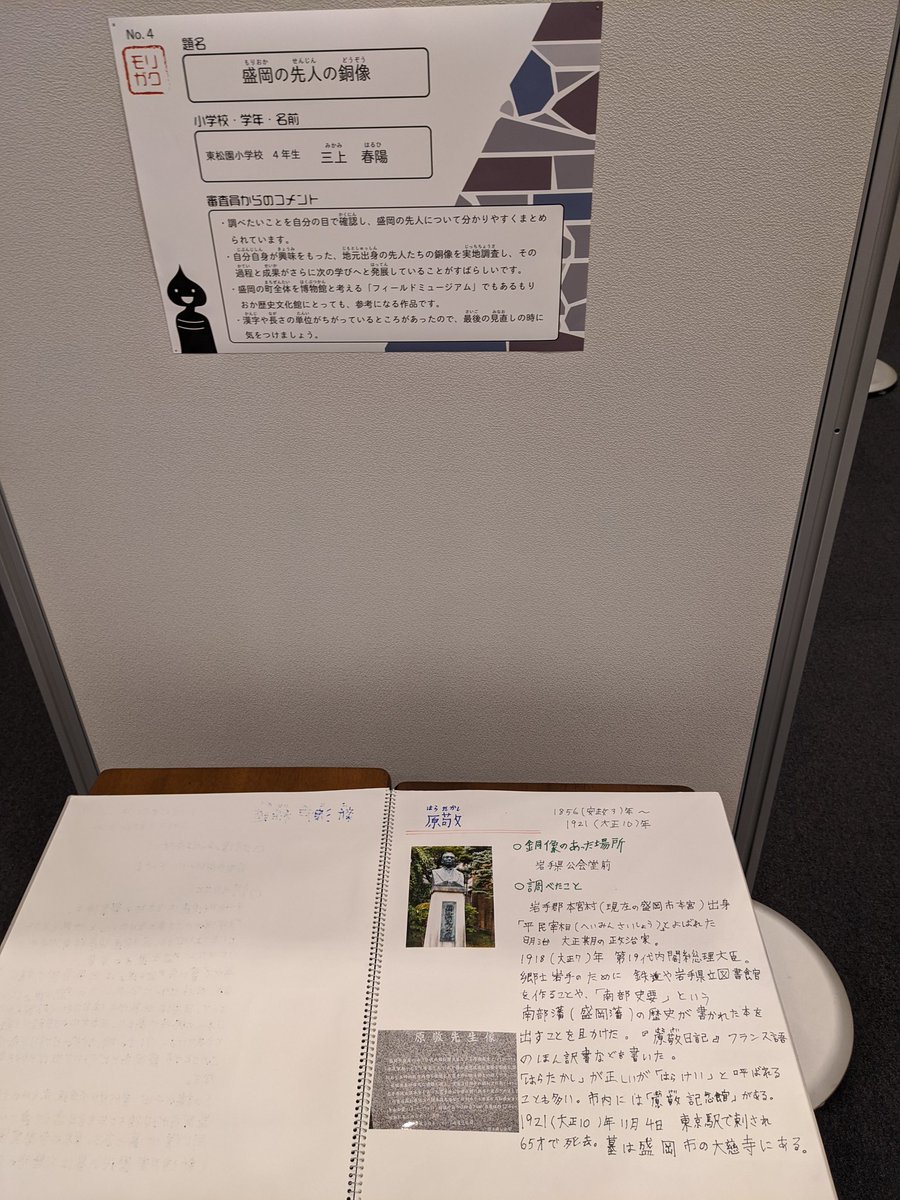 No.4
モリガク
題名
盛岡の先人の銅像
小学校・学年・名前
東松園小学校 4年生 三上 春陽
審査員からのコメント
・調べたいことを自分の目で確認し、盛岡の先人について分かりやすくまとめ
られています。
・自分自身が興味をもった、地元出身の先人たちの銅像を実地調査し、その
過程と成果がさらに次の学びへと発展していることがすばらしいです。
・盛岡の町全体を博物館と考える「フィールドミュージアム」でもあるもり
おか歴史文化館にとっても、参考になる作品です。
・漢字や長さの単位がちがっているところがあったので、最後の見直しの時に
気をつけましょう。
はらたかし
原敬
1856(安政3)年〜
1921(大正10)年
○銅像のあった場所
岩手県公会堂前
○調べたこと
岩手郡本宮村(現在の盛岡市本宮)出身
「平民宰相(へいみんさいしょう)とよばれた
明治 大正期の政治家。
1918(大正7)年 第19代内閣総理大臣。
郷土岩手のために 鉄道や岩手県立図書館
を作ることや、「南部史要」という
南部藩(盛岡藩)の歴史が書かれた本を
出すことを助けた。『原敬日記』フランス語
のほん訳書なども書いた。
「はらたかし」が正しいが「はらけい」と呼ばれる
ことも多い。市内には「原敬記念館」がある。
1921(大正10)年11月4日 東京駅で刺され
65才で死去。墓は盛岡市の大慈寺にある。
原敬先生像